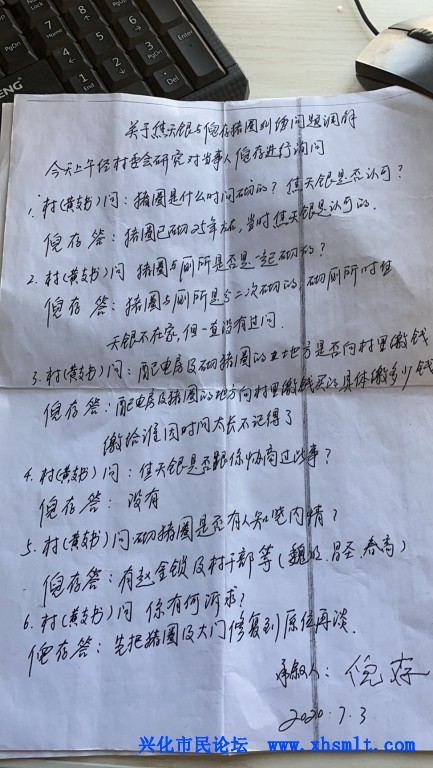 关于焦天银与倪存猪圈纠纷问题调解
今天上午经村委会研究对当事人倪存进行询问
1. 村(黄支书)问：猪圈是什么时间砌的？焦天银是否认可？
倪存答：猪圈已砌25年左右，当时焦天银是认可的.
2. 村(黄支书)问 猪圈与厕所是否是一起砌的？
倪存答：猪圈与厕所是分二次砌的，砌厕所时焦
天银不在家，但一直没有过问.
3. 村(黄支书)问：配电房及砌猪圈的土地方是否向村里缴钱
倪存答：配电房及猪圈的地方向村里缴钱买的，具体缴多少钱
缴给谁因时间太长不记得了
4. 村(黄支书)问：焦天银是否跟你协商过此事？
倪存答：没有
5. 村(黄支书)问砌猪圈是否有人知晓内情？
倪存答：有赵金锁及村干部等(魏 昌 春高)
6. 村(黄支书)问 你有何诉求？
倪存答：先把猪圈及大门修复到原位再谈.
人：倪存
2020.7.3
兴化市民论坛 www.xhsmlt.com
PgDn
End
Del
Ctrl